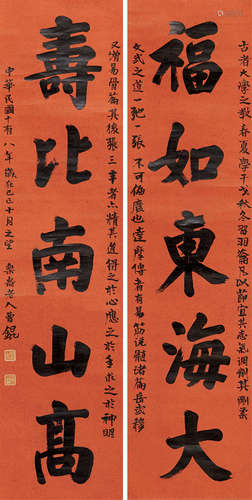 古者大學之教春夏學干戈秋冬習羽籥凡以節宣其志氣調劑其剛柔
福如東海大
文武之道一弛一張不可偏廢也達摩傳者有易筋說髓諸篇岳武穆
又增易骨篇其後張三丰者六精其道得之於心應之於手求之於神明
壽比南山高
中華民國十有八年歲在己巳十月之望
樂壽老人曹錕